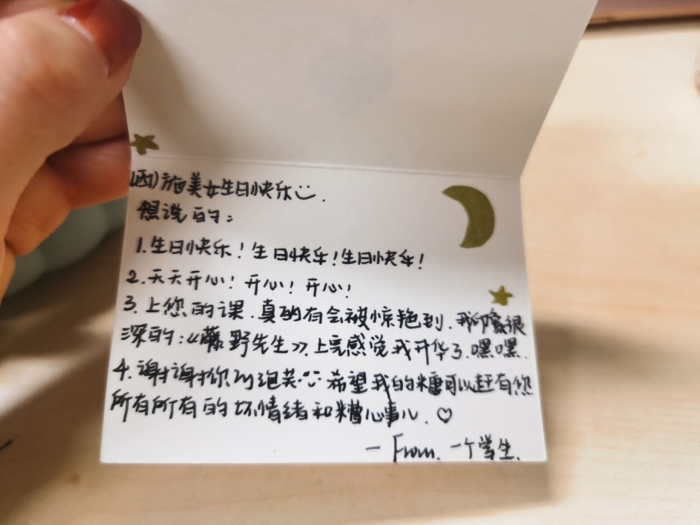 施美女生日快乐
想说的:
1.生日快乐!生日快乐!生日快乐!
2.天天开心!开心!开心!
3.上您的课.真的有会被惊艳到.我印象很
深的:《藤野先生》.上完感觉我升华了.嘿嘿.
4.谢谢你的泡芙 希望我的糖可以赶有您
所有所有的坏情绪和糟心事儿.♡
— From. 一个学生.